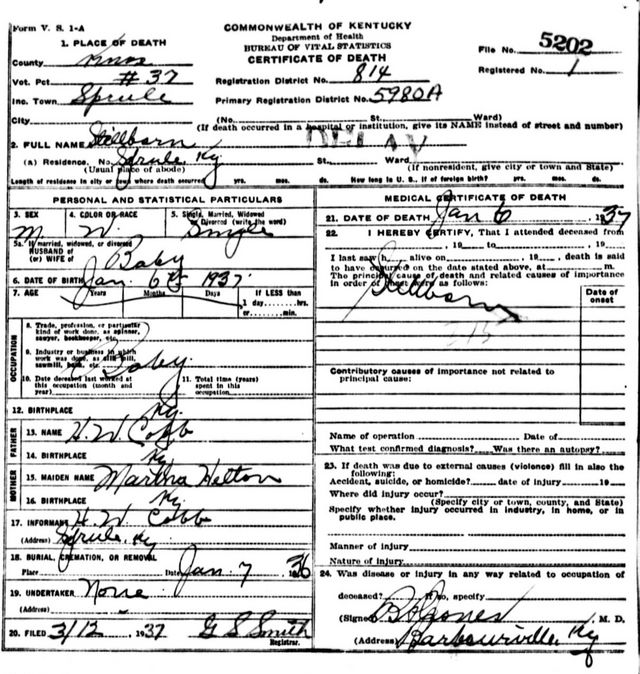 Form V. S. 1-A
COMMONWEALTH OF KENTUCKY
Department of Health
BUREAU OF VITAL STATISTICS
CERTIFICATE OF DEATH
File No. 5202
Registered No. 1
1. PLACE OF DEATH
County Knox
Vot. Pct #37
Inc. Town Sprule
City
Registration District No. 814
Primary Registration District No. 5980A
(No. St. Ward)
(If death occurred in a hospital or institution, give its NAME instead of street and number)
2. FULL NAME Stillborn
(a) Residence. No. Sprule, Ky St. Ward.
(Usual place of abode) (If nonresident, give city or town and State)
Length of residence in city or town where death occurred yrs. mos. ds. How long in U. S., if of foreign birth? yrs. mos. ds.
PERSONAL AND STATISTICAL PARTICULARS
3. SEX 4. COLOR OR RACE 5. Single, Married, Widowed
or Divorced (write the word)
M W Single
5a. If married, widowed, or divorced
HUSBAND of
(or) WIFE of Baby
6. DATE OF BIRTH Jan. 6th 1937.
7. AGE Years Months Days If LESS than
1 day, hrs.
or min.
OCCUPATION
8. Trade, profession, or particular
kind of work done, as spinner,
sawyer, bookkeeper, etc.
9. Industry or business in which
work was done, as silk mill,
sawmill, bank, etc. Baby
10. Date deceased last worked at
this occupation (month and
year)
11. Total time (years)
spent in this
occupation
12. BIRTHPLACE Ky.
FATHER
13. NAME H. W. Cobb
14. BIRTHPLACE Ky
MOTHER
15. MAIDEN NAME Martha Helton
16. BIRTHPLACE Ky
17. INFORMANT H. W. Cobb
(Address) Sprule, Ky
18. BURIAL, CREMATION, OR REMOVAL
Place Date Jan 7 1936
19. UNDERTAKER None
(Address)
20. FILED 3/12, 1937 G S Smith
Registrar.
MEDICAL CERTIFICATE OF DEATH
21. DATE OF DEATH Jan 6 1937
22. I HEREBY CERTIFY, That I attended deceased from
, 19 to , 19
I last saw h alive on , 19 death is said
to have occurred on the date stated above, at m.
The principal cause of death and related causes of importance
in order of onset were as follows:
Date of
onset
Stillborn
Contributory causes of importance not related to
principal cause:
Name of operation Date of
What test confirmed diagnosis? Was there an autopsy?
23. If death was due to external causes (violence) fill in also the
following:
Accident, suicide, or homicide? date of injury 19
Where did injury occur?
(Specify city or town, county, and State)
Specify whether injury occurred in industry, in home, or in
public place.
Manner of injury
Nature of injury
24. Was disease or injury in any way related to occupation of
deceased? If so, specify
(Signed) Jones M. D.
(Address) Barbourville, Ky